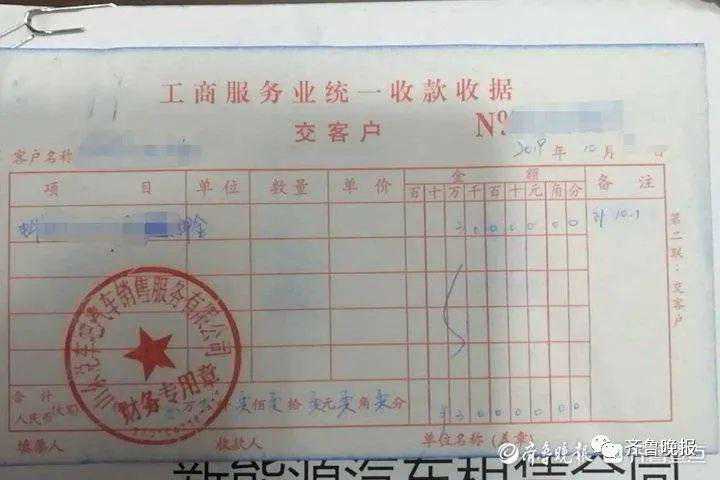 工商服务业统一收款收据
交客户 №
客户名称 2019年10月
项目 单位 数量 单价 金额 备注
百十万千百十元角分
押金 2000000 到10.1
第二联:交客户
汽车销售服务有限公司
财务专用章
合计人民币(大写) 万 仟零佰零拾零元零角零分 ¥2000000
填票人 收款人 单位名称(盖章)
齐鲁晚报 齐鲁晚报
新能源汽车租赁合同